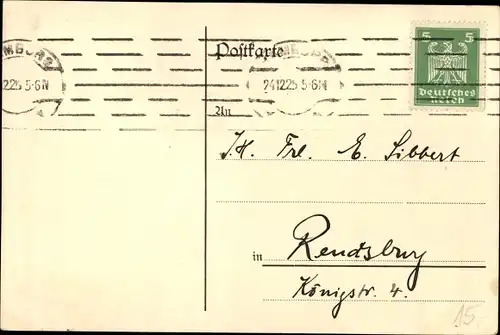 MBURG
12.25 5-6N
Postkarte
MBURG
24.12.25 5-6N
5 5
Deutsches
Reich
An
Frl. E. Sibbert
in Rendsburg
Königstr. 4.
15,-